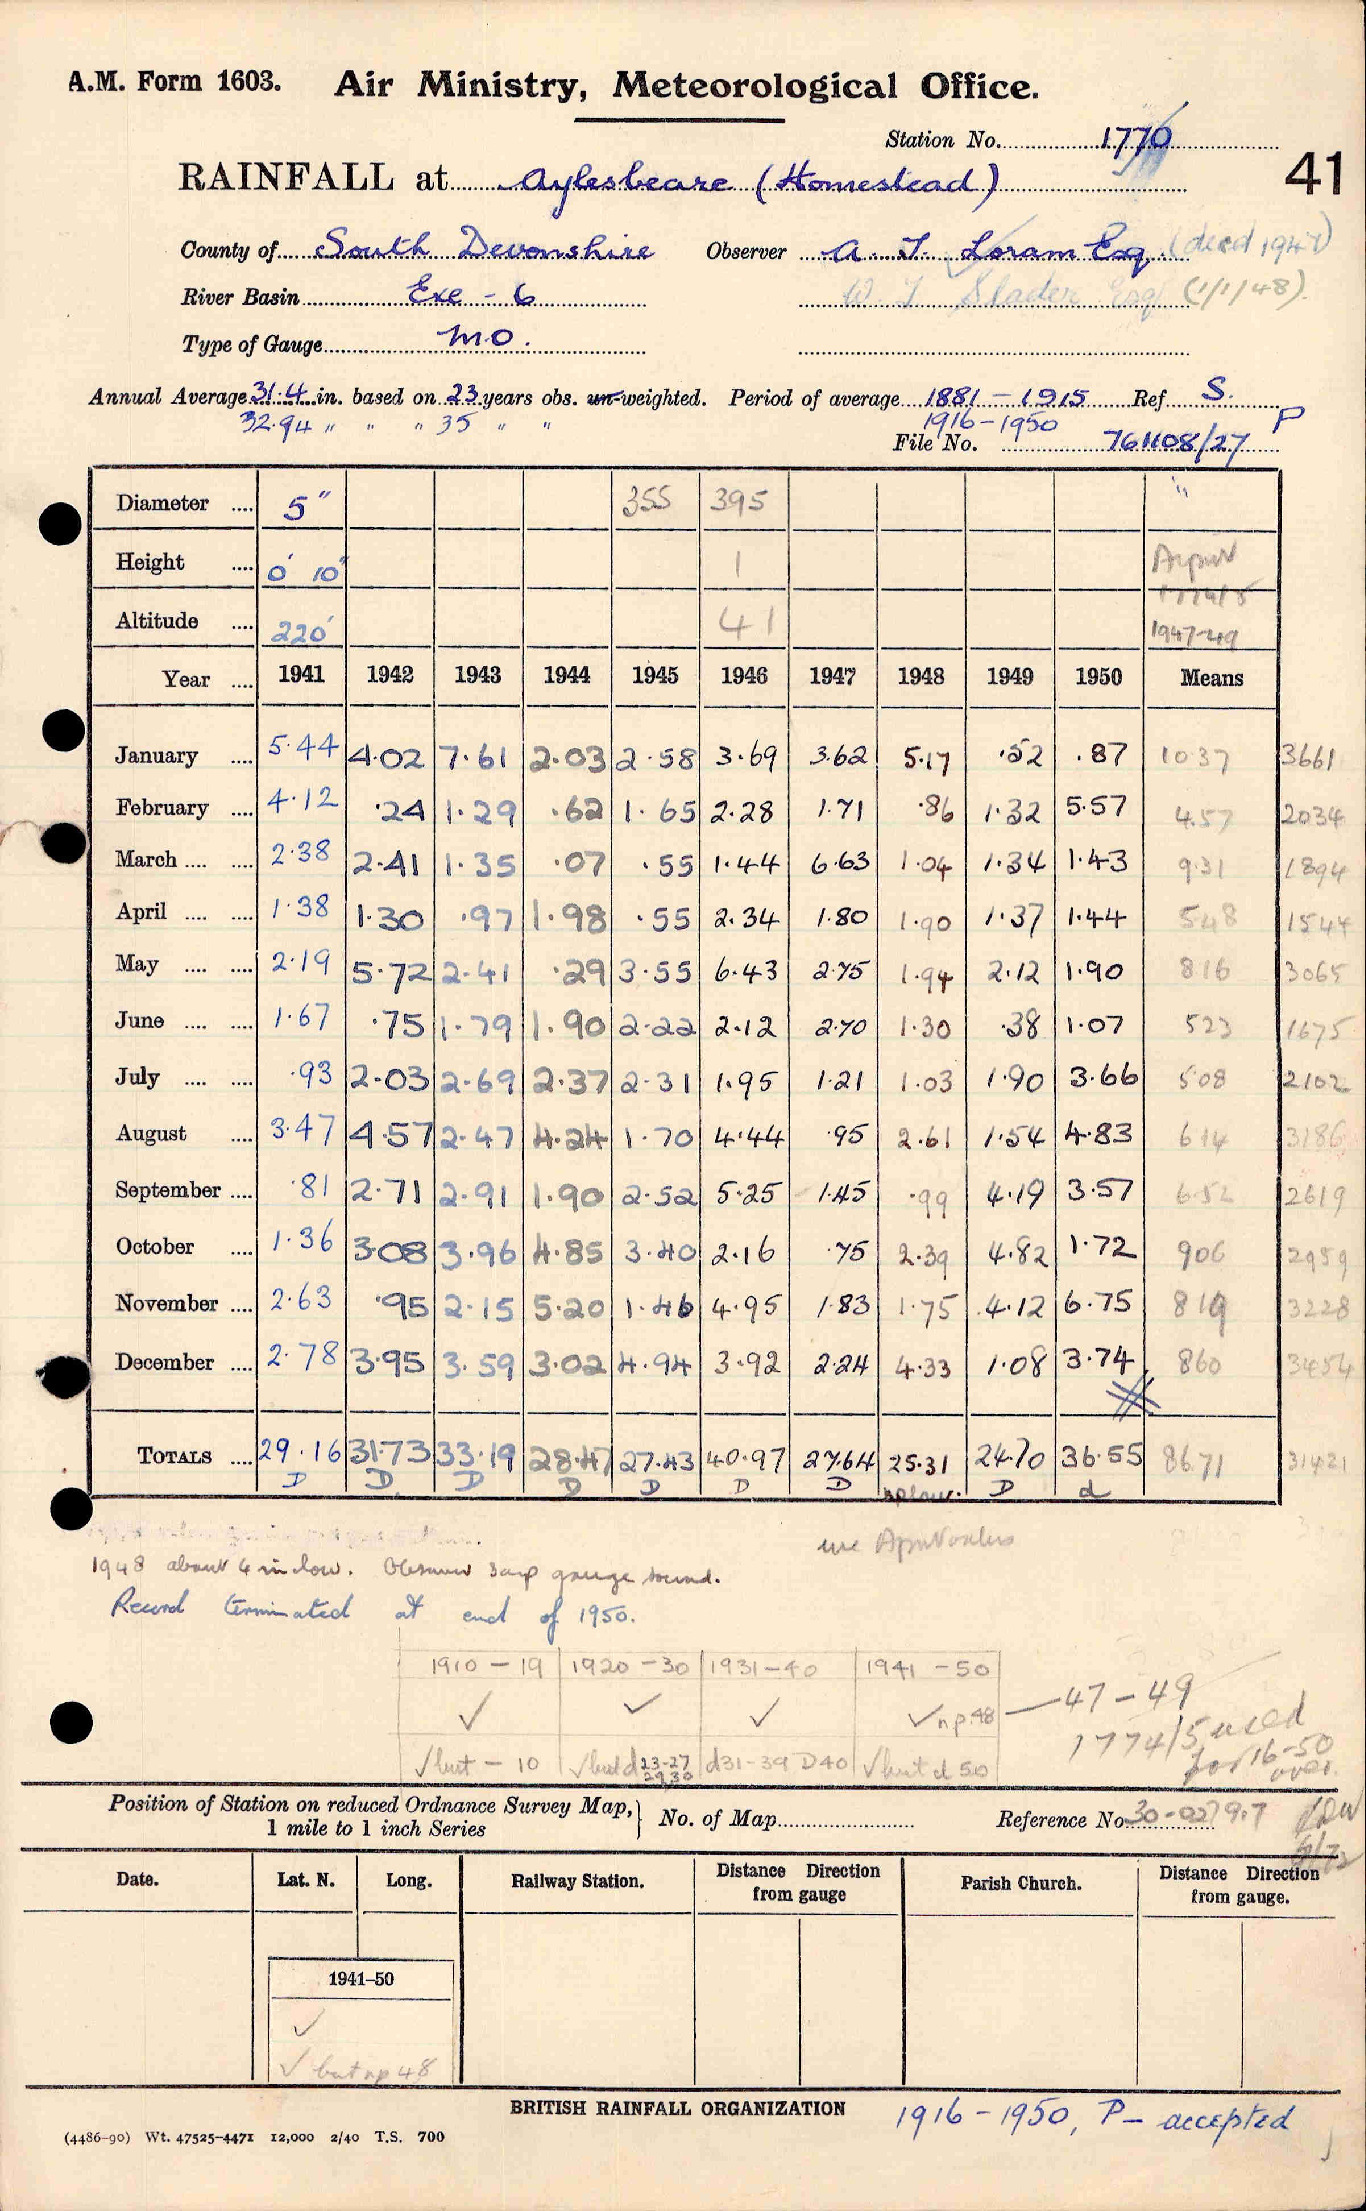 A.M. Form 1603. Air Ministry, Meteorological Office.
Station No. 1770
41
RAINFALL at Aylesbeare (Homestead)
County of South Devonshire Observer A. J. Loram Esq. (died 1947)
River Basin Exe - 6 W J Slader Esq (1/1/48).
Type of Gauge M.O.
Annual Average 31.4 in. based on 23 years obs. un-weighted. Period of average 1881 - 1915 Ref S.
32.94 " " " 35 " " 1916-1950 P
File No. 761108/27
Diameter .... 5" 355 395 "
Height .... 0' 10" 1
Altitude .... 220' 41 1947-49
Year .... 1941 1942 1943 1944 1945 1946 1947 1948 1949 1950 Means
January .... 5.44 4.02 7.61 2.03 2.58 3.69 3.62 5.17 .52 .87 1037 3661
February .... 4.12 .24 1.29 .62 1.65 2.28 1.71 .86 1.32 5.57 4.57 2034
March .... .... 2.38 2.41 1.35 .07 .55 1.44 6.63 1.04 1.34 1.43 931 1894
April .... .... 1.38 1.30 .97 1.98 .55 2.34 1.80 1.90 1.37 1.44 548 1544
May .... .... 2.19 5.72 2.41 .29 3.55 6.43 2.75 1.94 2.12 1.90 816 3065
June .... .... 1.67 .75 1.79 1.90 2.22 2.12 2.70 1.30 .38 1.07 523 1675
July .... .... .93 2.03 2.69 2.37 2.31 1.95 1.21 1.03 1.90 3.66 508 2102
August .... 3.47 4.57 2.47 4.24 1.70 4.44 .95 2.61 1.54 4.83 614 3186
September .... .81 2.71 2.91 1.90 2.52 5.25 1.45 .99 4.19 3.57 652 2619
October .... 1.36 3.08 3.96 4.85 3.40 2.16 .75 2.39 4.82 1.72 906 2959
November .... 2.63 .95 2.15 5.20 1.46 4.95 1.83 1.75 4.12 6.75 819 3228
December .... 2.78 3.95 3.59 3.02 4.94 3.92 2.24 4.33 1.08 3.74 860 3454
TOTALS .... 29.16 31.73 33.19 28.47 27.43 40.97 27.64 25.31 24.70 36.55 86.71 31421
D D D D D D D D d
1948 about 4 in low. Observer says gauge sound.
Record terminated at end of 1950.
1910 - 19 1920 - 30 1931 - 40 1941 - 50
✓ ✓ ✓ ✓ n.p. 48 — 47 - 49
1774/5 used
for 16-50
over.
✓ but - 10 ✓ but d 23-27 29,30 d31-39 D40 ✓ but d 50
Position of Station on reduced Ordnance Survey Map, 1 mile to 1 inch Series } No. of Map Reference No. 30-0279.7
Date. Lat. N. Long. Railway Station. Distance Direction from gauge Parish Church. Distance Direction from gauge.
1941-50
✓
✓ but np 48
BRITISH RAINFALL ORGANIZATION
1916 - 1950, P - accepted
(4486-90) Wt. 47525-4471 12,000 2/40 T.S. 700